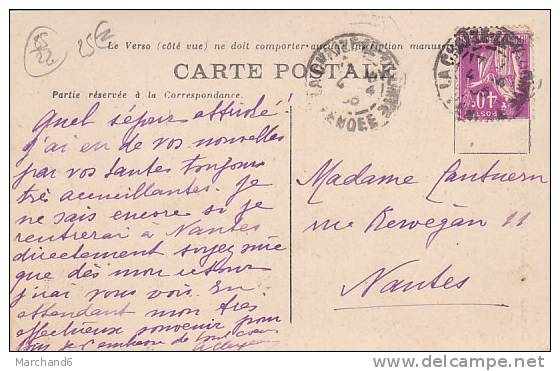 25
Le Verso (côté vue) ne doit comporter aucune inscription manus
CARTE POSTALE
Partie réservée à la Correspondance.
LA CHAIZE-LE-VICOMTE
VENDEE
POSTES
40
Quel séjour attristé !
J'ai eu de vos nouvelles
par vos tantes toujours
très accueillantes. Je
ne sais encore si je
rentrerai à Nantes
directement soyez sûre
que dès mon retour
j'irai vous voir. En
attendant mon très
affectueux souvenir pour
tous & t'embrasse de tout cœur
Madame Lantuern
rue Kervégan 11
Nantes
Marchand6
www.delcampe.net